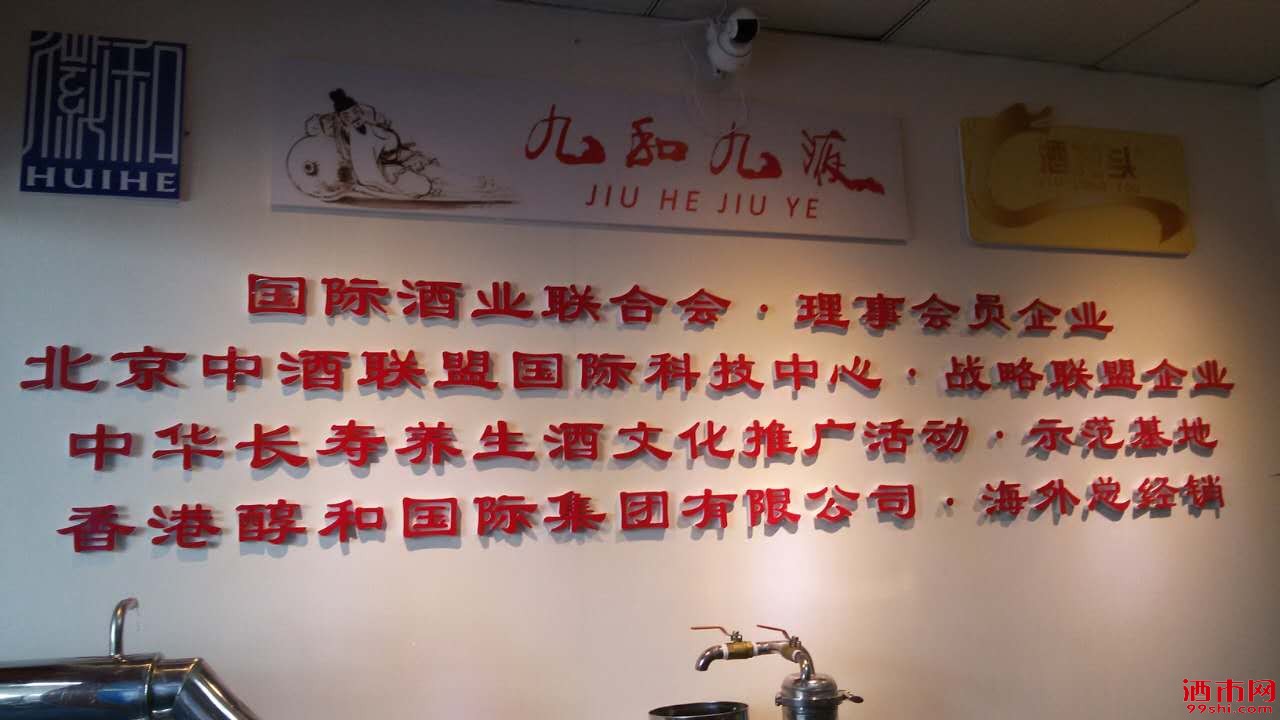 徽和
HUIHE
九和九液
JIU HE JIU YE
国际酒业联合会·理事会员企业
北京中酒联盟国际科技中心·战略联盟企业
中华长寿养生酒文化推广活动·示范基地
香港醇和国际集团有限公司·海外总经销
酒市网
99shi.com